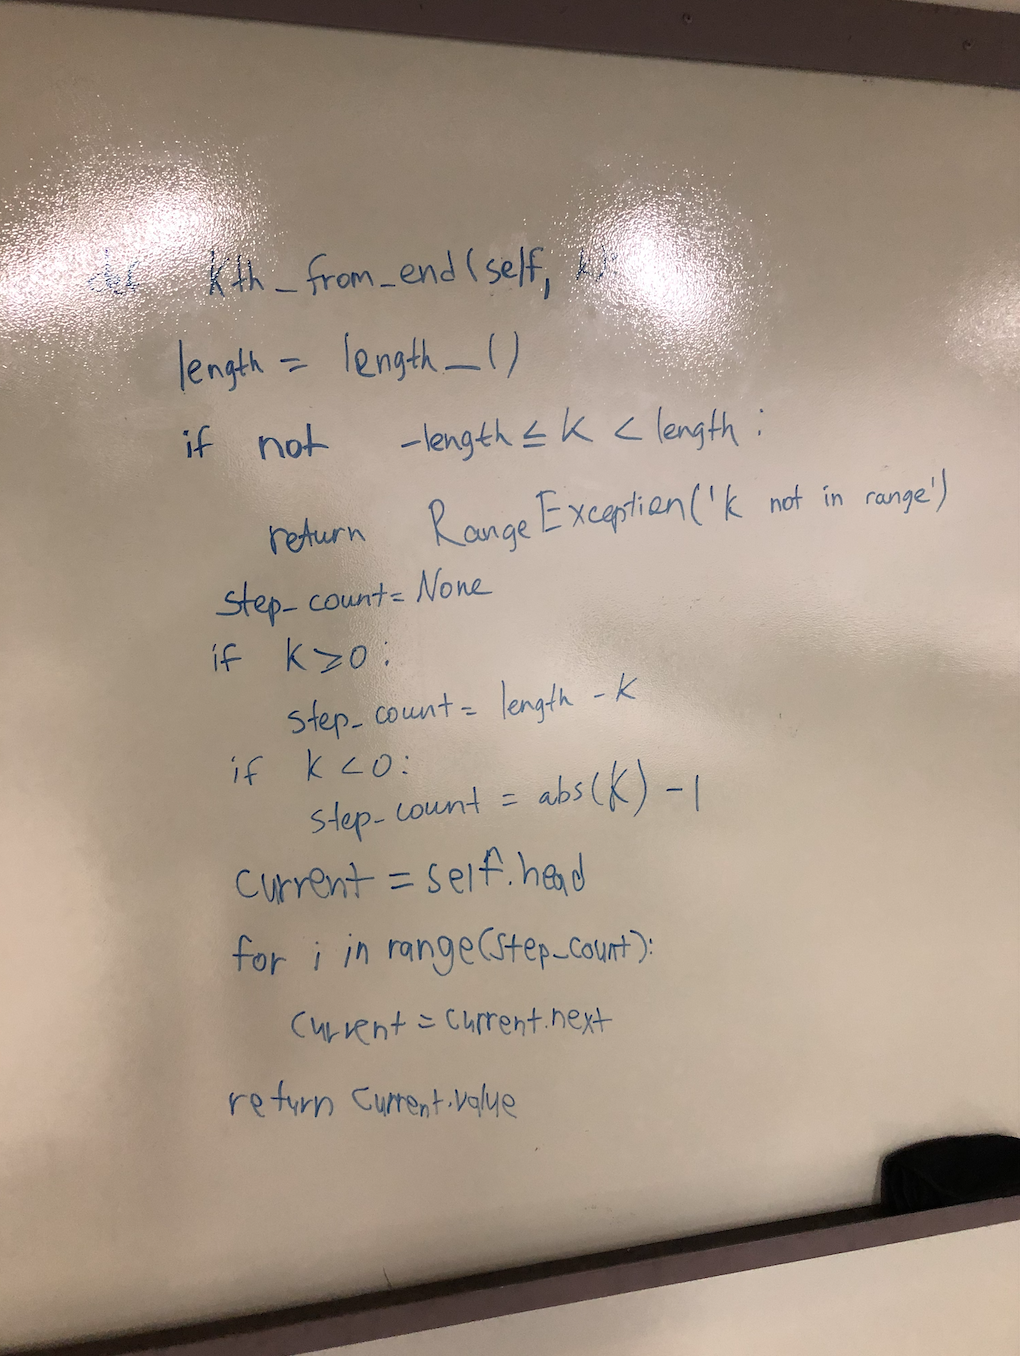 def kth_from_end(self, k):
length = length_()
if not -length ≤ k < length:
return RangeException('k not in range')
step_count = None
if k ≥ 0:
step_count = length - k
if k < 0:
step_count = abs(k) - 1
current = self.head
for i in range(step_count):
current = current.next
return current.value